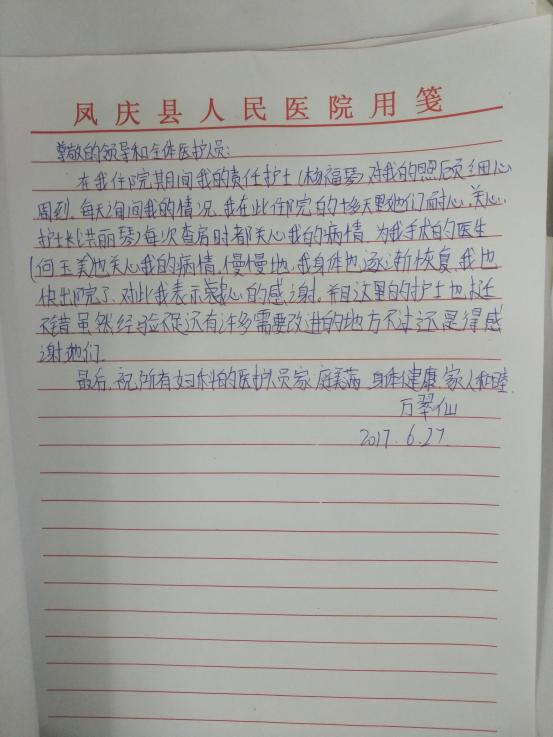 凤庆县人民医院用笺
尊敬的领导和全体医护人员：
在我住院期间我的责任护士（杨福琴）对我的照顾细心
周到，每天询问我的情况，我在此住院的十多天里她们耐心、关心，
护士长（洪丽琴）每次查房时都关心我的病情，为我手术的医生
（何玉美）也关心我的病情，慢慢地，我身体也逐渐恢复，我也
快出院了，对此我表示衷心的感谢。并且这里的护士也挺
不错虽然经验不足还有许多需要改进的地方不过还是得感
谢她们。
最后，祝所有妇科的医护人员家庭美满 身体健康 家人和睦.
万翠仙
2017.6.27.